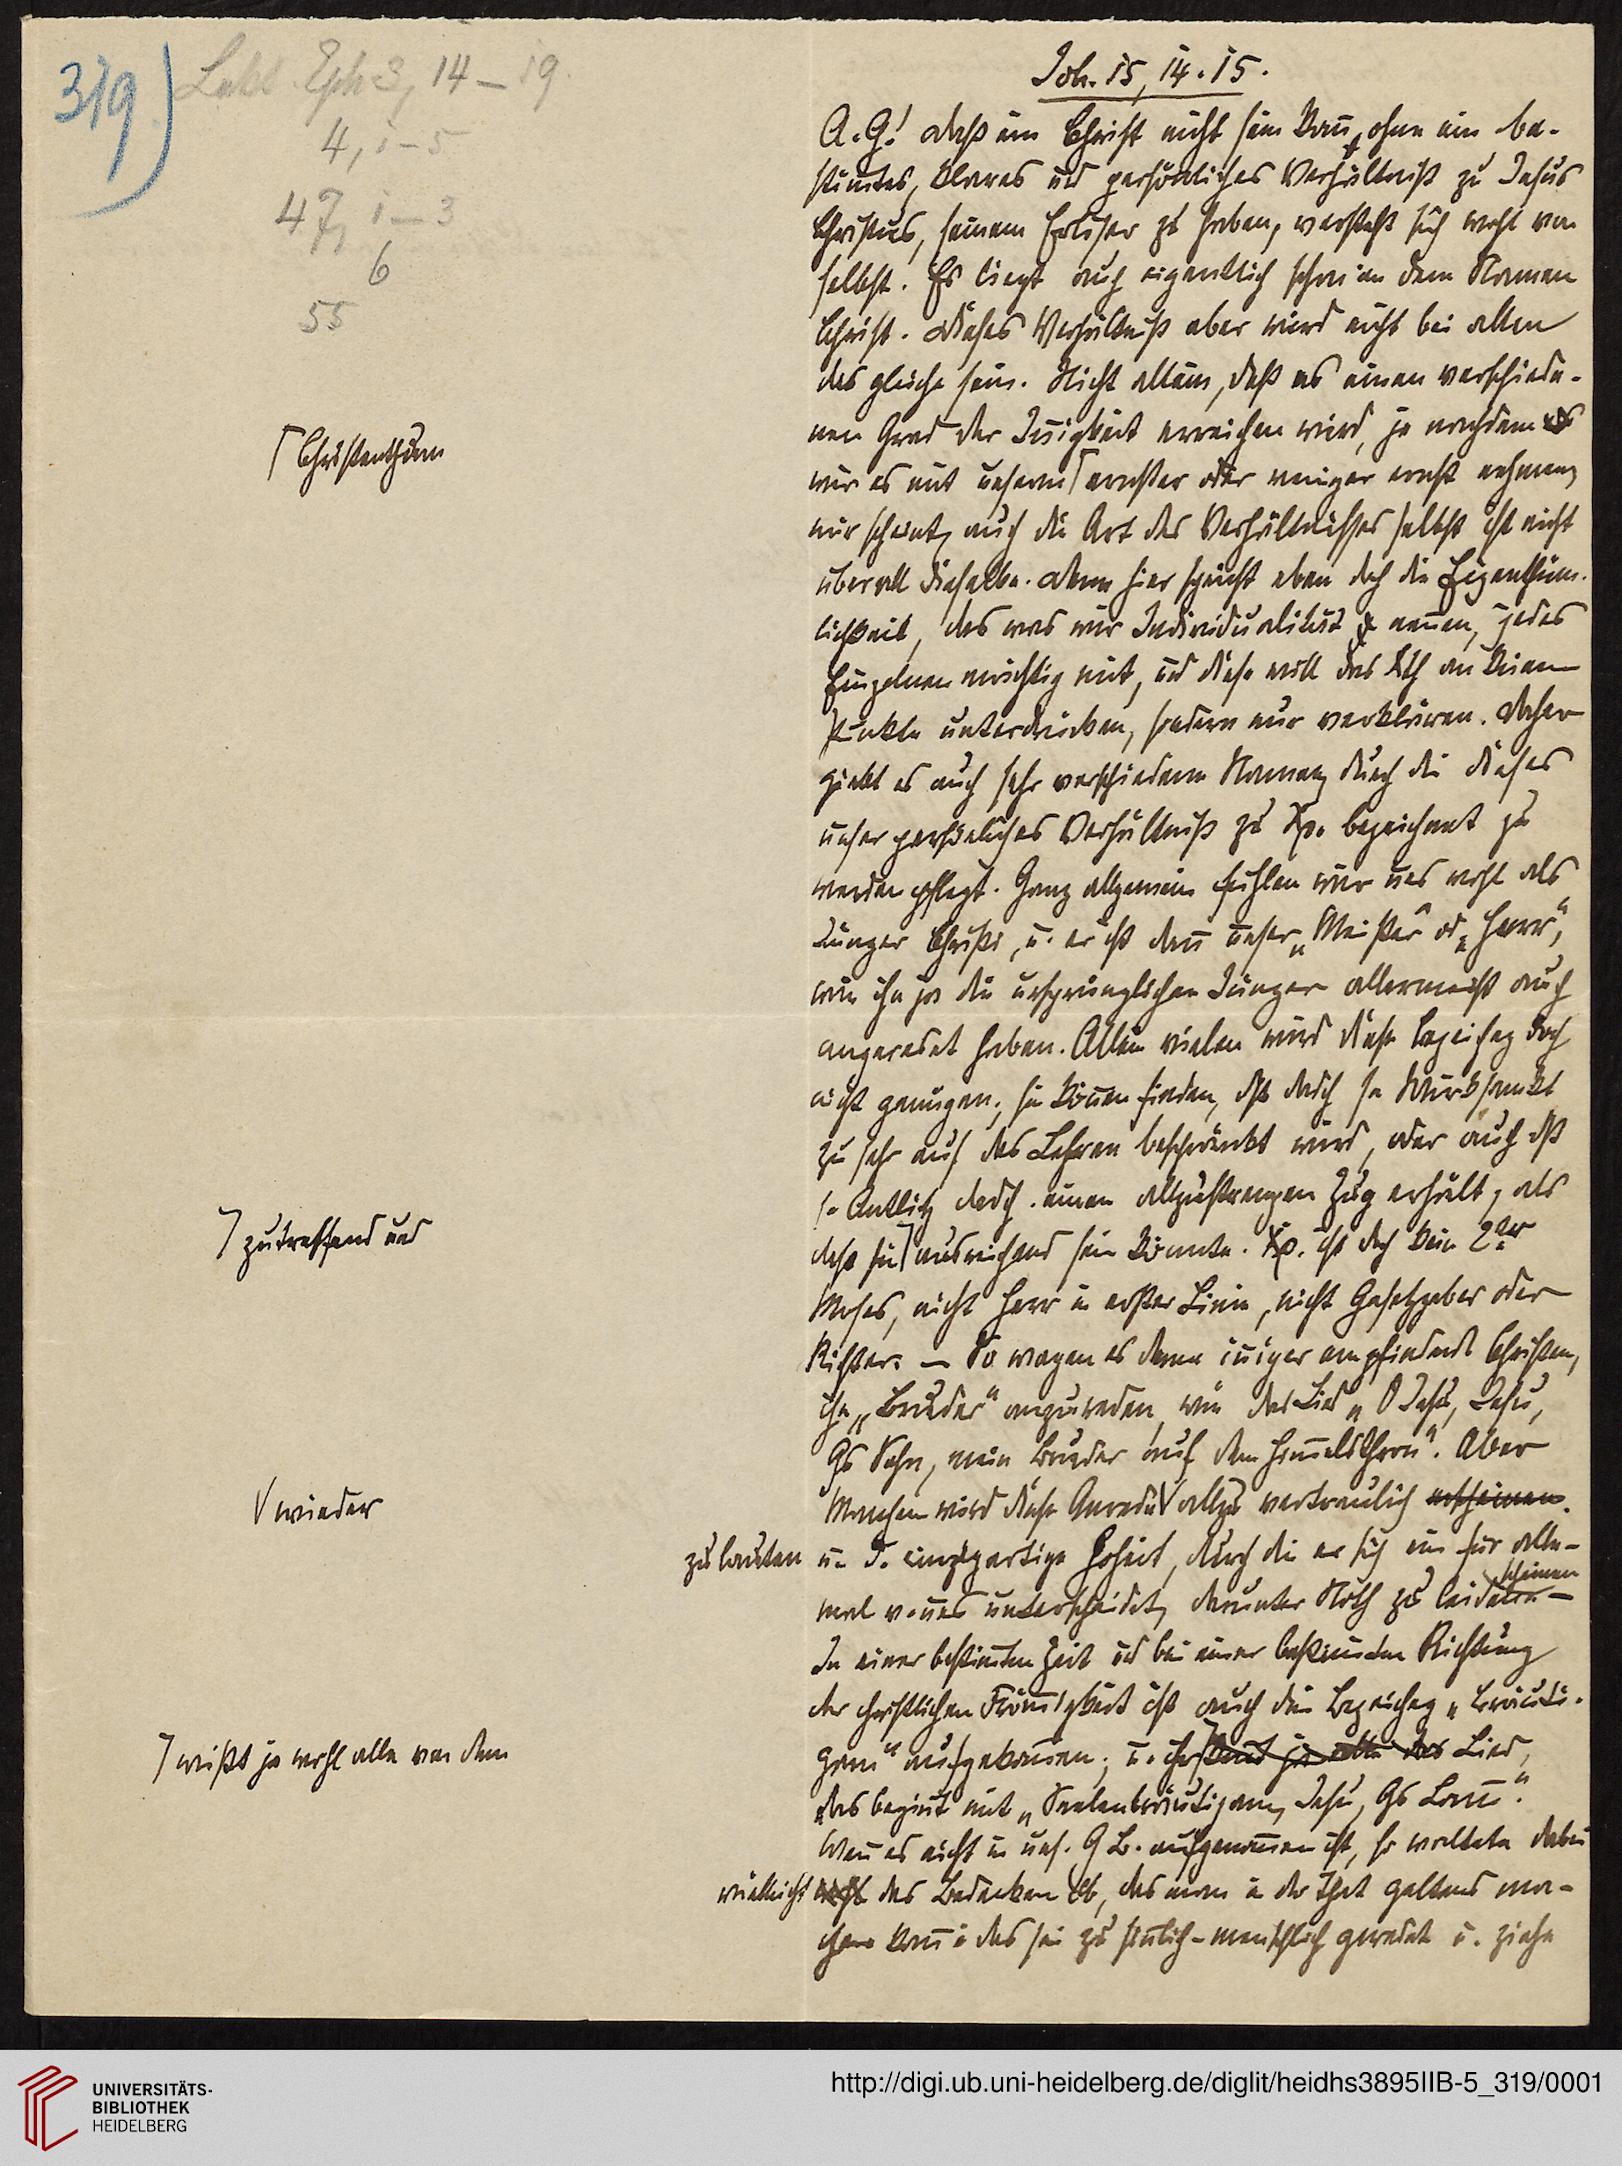 319)
Lekt. Eph 3, 14–19.
4, 1–5
47, 1–3
6
55
Joh. 15, 14. 15.
A. G! Daß ein Christ nicht sein kann, ohne ein be-
stimtes, klares und persönliches Verhältniß zu Jesus
Christus, seinem Erlöser zu haben, versteht sich wohl von
selbst. Es liegt auch eigentlich schon in dem Namen
Christ. Dieses Verhältniß aber wird nicht bei allen
das gleiche sein. Nicht allein, daß es einen verschiede-
nen Grad der Innigkeit erreichen wird, je nachdem
wir es mit unserm ⌈ ernster oder weniger ernst nehmen,
⌈ Christenthum
mir scheint, auch die Art des Verhältnisses selbst ist nicht
überall dieselbe. Denn hier spricht eben doch die Eigenthüm-
lichkeit, das was wir Individualität nennen, jedes
Einzelnen mächtig mit, und diese will das Xth an keinem
Punkte unterdrücken, sondern nur verklären. Daher
giebt es auch sehr verschiedene Namen, durch die dieses
unser persönliches Verhältniß zu Xp. bezeichnet zu
werden pflegt. Ganz allgemein fühlen wir uns wohl als
Jünger Christi, u. er ist dann unser „Meister“ od. „Herr“,
wie ihn ja die ursprünglichen Jünger allermeist auch
angeredet haben. Allein vielen wird diese Bezeichg doch
nicht genügen, sie können finden, dß dadch se Wirksamkt
zu sehr auf das Lehren beschränkt wird, oder auch dß
s. Antlitz dadch. einen allzustrengen Zug erhält, als
daß sie ⌉ ausreichend sein könnte. Xp. ist doch kein 2ter
⌉ zutreffend und
Moses, nicht Herr in erster Linie, nicht Gesetzgeber oder
Richter. – So wagen es denn inniger empfindende Christen,
ihn „Bruder“ anzureden, wie das Lied „O Jesu, Jesu,
Gs Sohn, mein Bruder auf dem Himmelsthron“. Aber
Manchem wird diese Anrede √ allzu vertraulich erscheinen.
√ wieder
zu lauten u. d. einzigartige Hoheit, durch die er sich ein für alle-
mal v. uns unterscheidet, darunter Noth zu leiden scheinen –
In einer bestimten Zeit und bei einer bestimmten Richtung
der christlichen Frömigkeit ist auch die Bezeichg „Bräuti-
gam“ aufgekommen; u. ihr ⌉ kennt ja alle das Lied,
⌉ wißt ja wohl alle von dem
das beginnt mit „Seelenbräutigam, Jesu, Gs Lamm“.
Wenn es nicht in uns. G B. aufgenommen ist, so waltete dabei
vielleicht wohl das Bedenken ob, das man in der That geltend ma-
chen kann: das sei zu sinnlich-menschlich geredet u. ziehe
UNIVERSITÄTS-
BIBLIOTHEK
HEIDELBERG
http://digi.ub.uni-heidelberg.de/diglit/heidhs3895IIB-5_319/0001